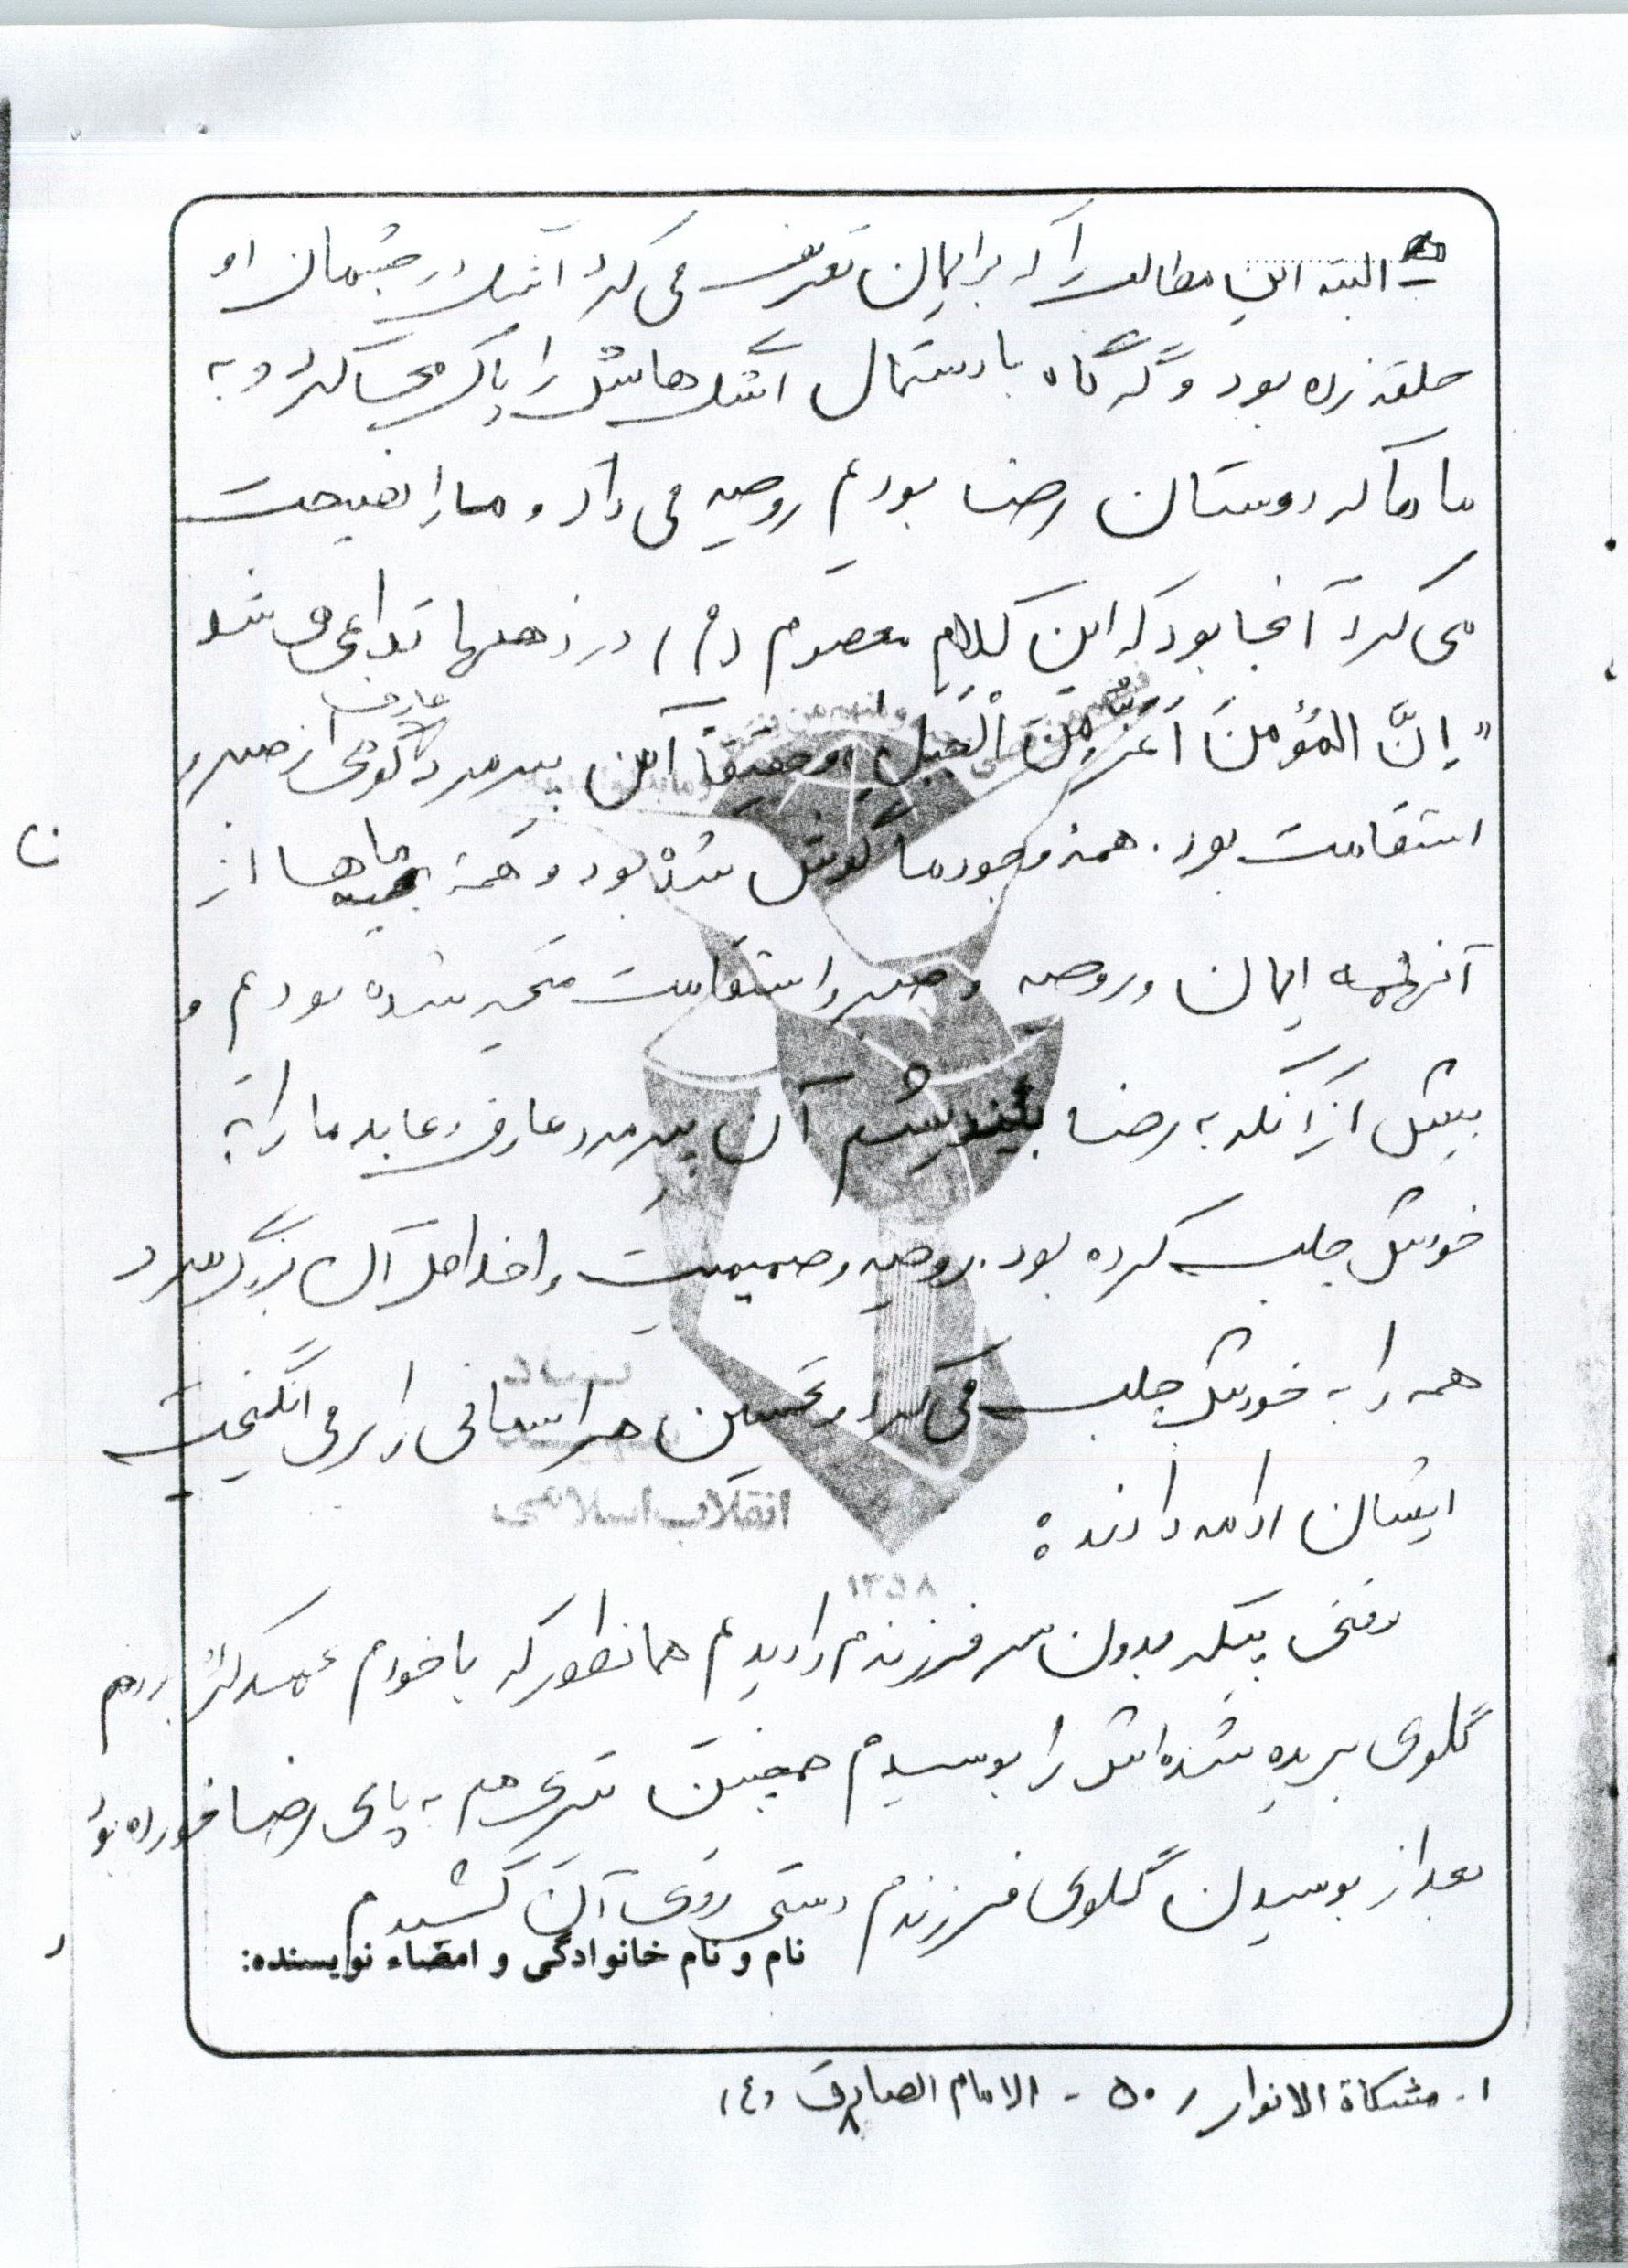 البته این مطالب را که برایمان تعریف می کرد اشک در چشمان او
حلقه زده بود و گه گاه با دستمال اشک هایش را پاک می کرد و به
ما که دوستان رضا بودیم روحیه می داد و ما را نصیحت
می کرد آنجا بود که این کلام معصوم (م) در ذهنها تداعی می شد
« إِنَّ المُؤمِنَ أَعَزُّ مِنَ الْجَبَلِ » و حقیقتاً آن پیرمرد عارف کوهی از صبر و
استقامت بود. همه وجود ما گوش شده بود و همه ماها از
آنهمه ایمان و روحیه و صبر و استقامت متحیر شده بودیم و
بیش از آنکه به رضا بیندیشیم آن پیرمرد عارف و عابد ما را به
خودش جلب کرده بود. روحیه و صمیمیت و اخلاص آن بزرگ مرد
همه را به خودش جلب می کرد و تحسین هر انسانی را بر می انگیخت
ایشان ادامه دادند:
وقتی پیکر بدون سر فرزندم را دیدم همانطور که با خودم عهد کرده بودم
گلوی بریده شده اش را بوسیدم همچنین تیری هم به پای رضا خورده بود
بعد از بوسیدن گلوی فرزندم دستی روی آن کشیدم
نام و نام خانوادگی و امضاء نویسنده:
۱- مشکاة الانوار / ۵۰ - الامام الصادق (ع)
بنیاد
انقلاب اسلامی
۱۳۵۸